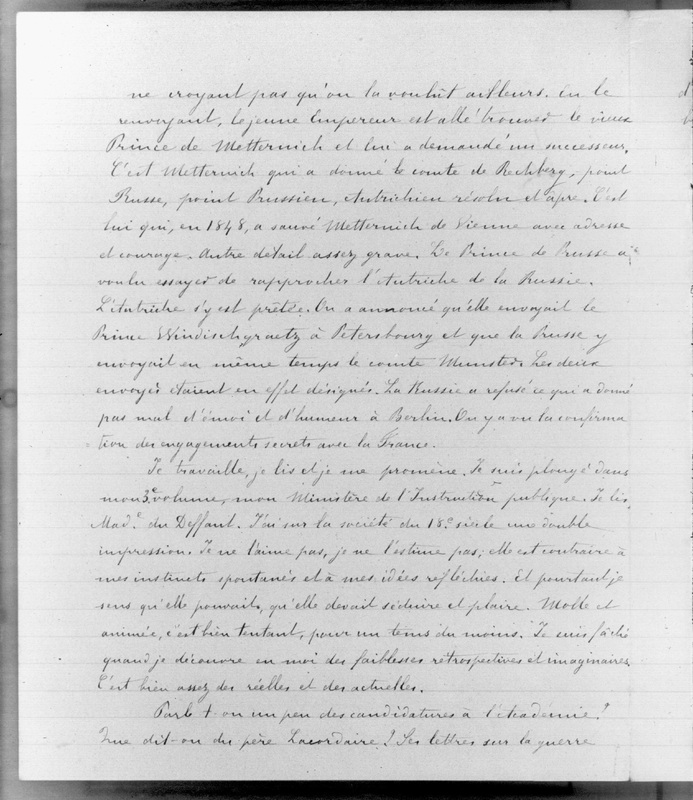 ne croyant pas qu'on la voulût ailleurs. En le
renvoyant, le jeune Empereur est allé trouver le vieux
Prince de Metternich et lui a demandé un successeur.
C'est Metternich qui a donné le comte de Rechberg, point
Russe, point Prussien, Autrichien résolu et âpre. C'est
lui qui, en 1848, a sauvé Metternich de Vienne avec adresse
et courage. Autre détail assez grave. Le Prince de Prusse a
voulu essayer de rapprocher l'Autriche de la Russie.
L'Autriche s'y est prêtée. On a annoncé qu'elle envoyait le
Prince Windischgraetz à Petersbourg et que la Prusse y
envoyait en même temps le comte Munster. Les deux
envoyés étaient en effet désignés. La Russie a refusé ce qui a donné
pas mal d'émoi et d'humeur à Berlin. On y a vu la confirma
tion des engagements secrets avec la France.
Je travaille, je lis et je me promène. Je suis plongé dans
mon 3e volume, mon Ministère de l'Instruction publique. Je lis
Made du Deffant. J'ai sur la société du 18e siècle une double
impression. Je ne l'aime pas, je ne l'estime pas; elle est contraire à
mes instincts spontanés et à mes idées réfléchies. Et pourtant je
sens qu'elle pouvait, qu'elle devait séduire et plaire. Molle et
animée, c'est bien tentant, pour un tems du moins. Je suis fâché
quand je découvre en moi des faiblesses rétrospectives et imaginaires.
C'est bien assez des réelles et des actuelles.
Parle t-on un peu des candidatures à l'Académie?
Que dit-on du père Lacordaire? Ses lettres sur la guerre